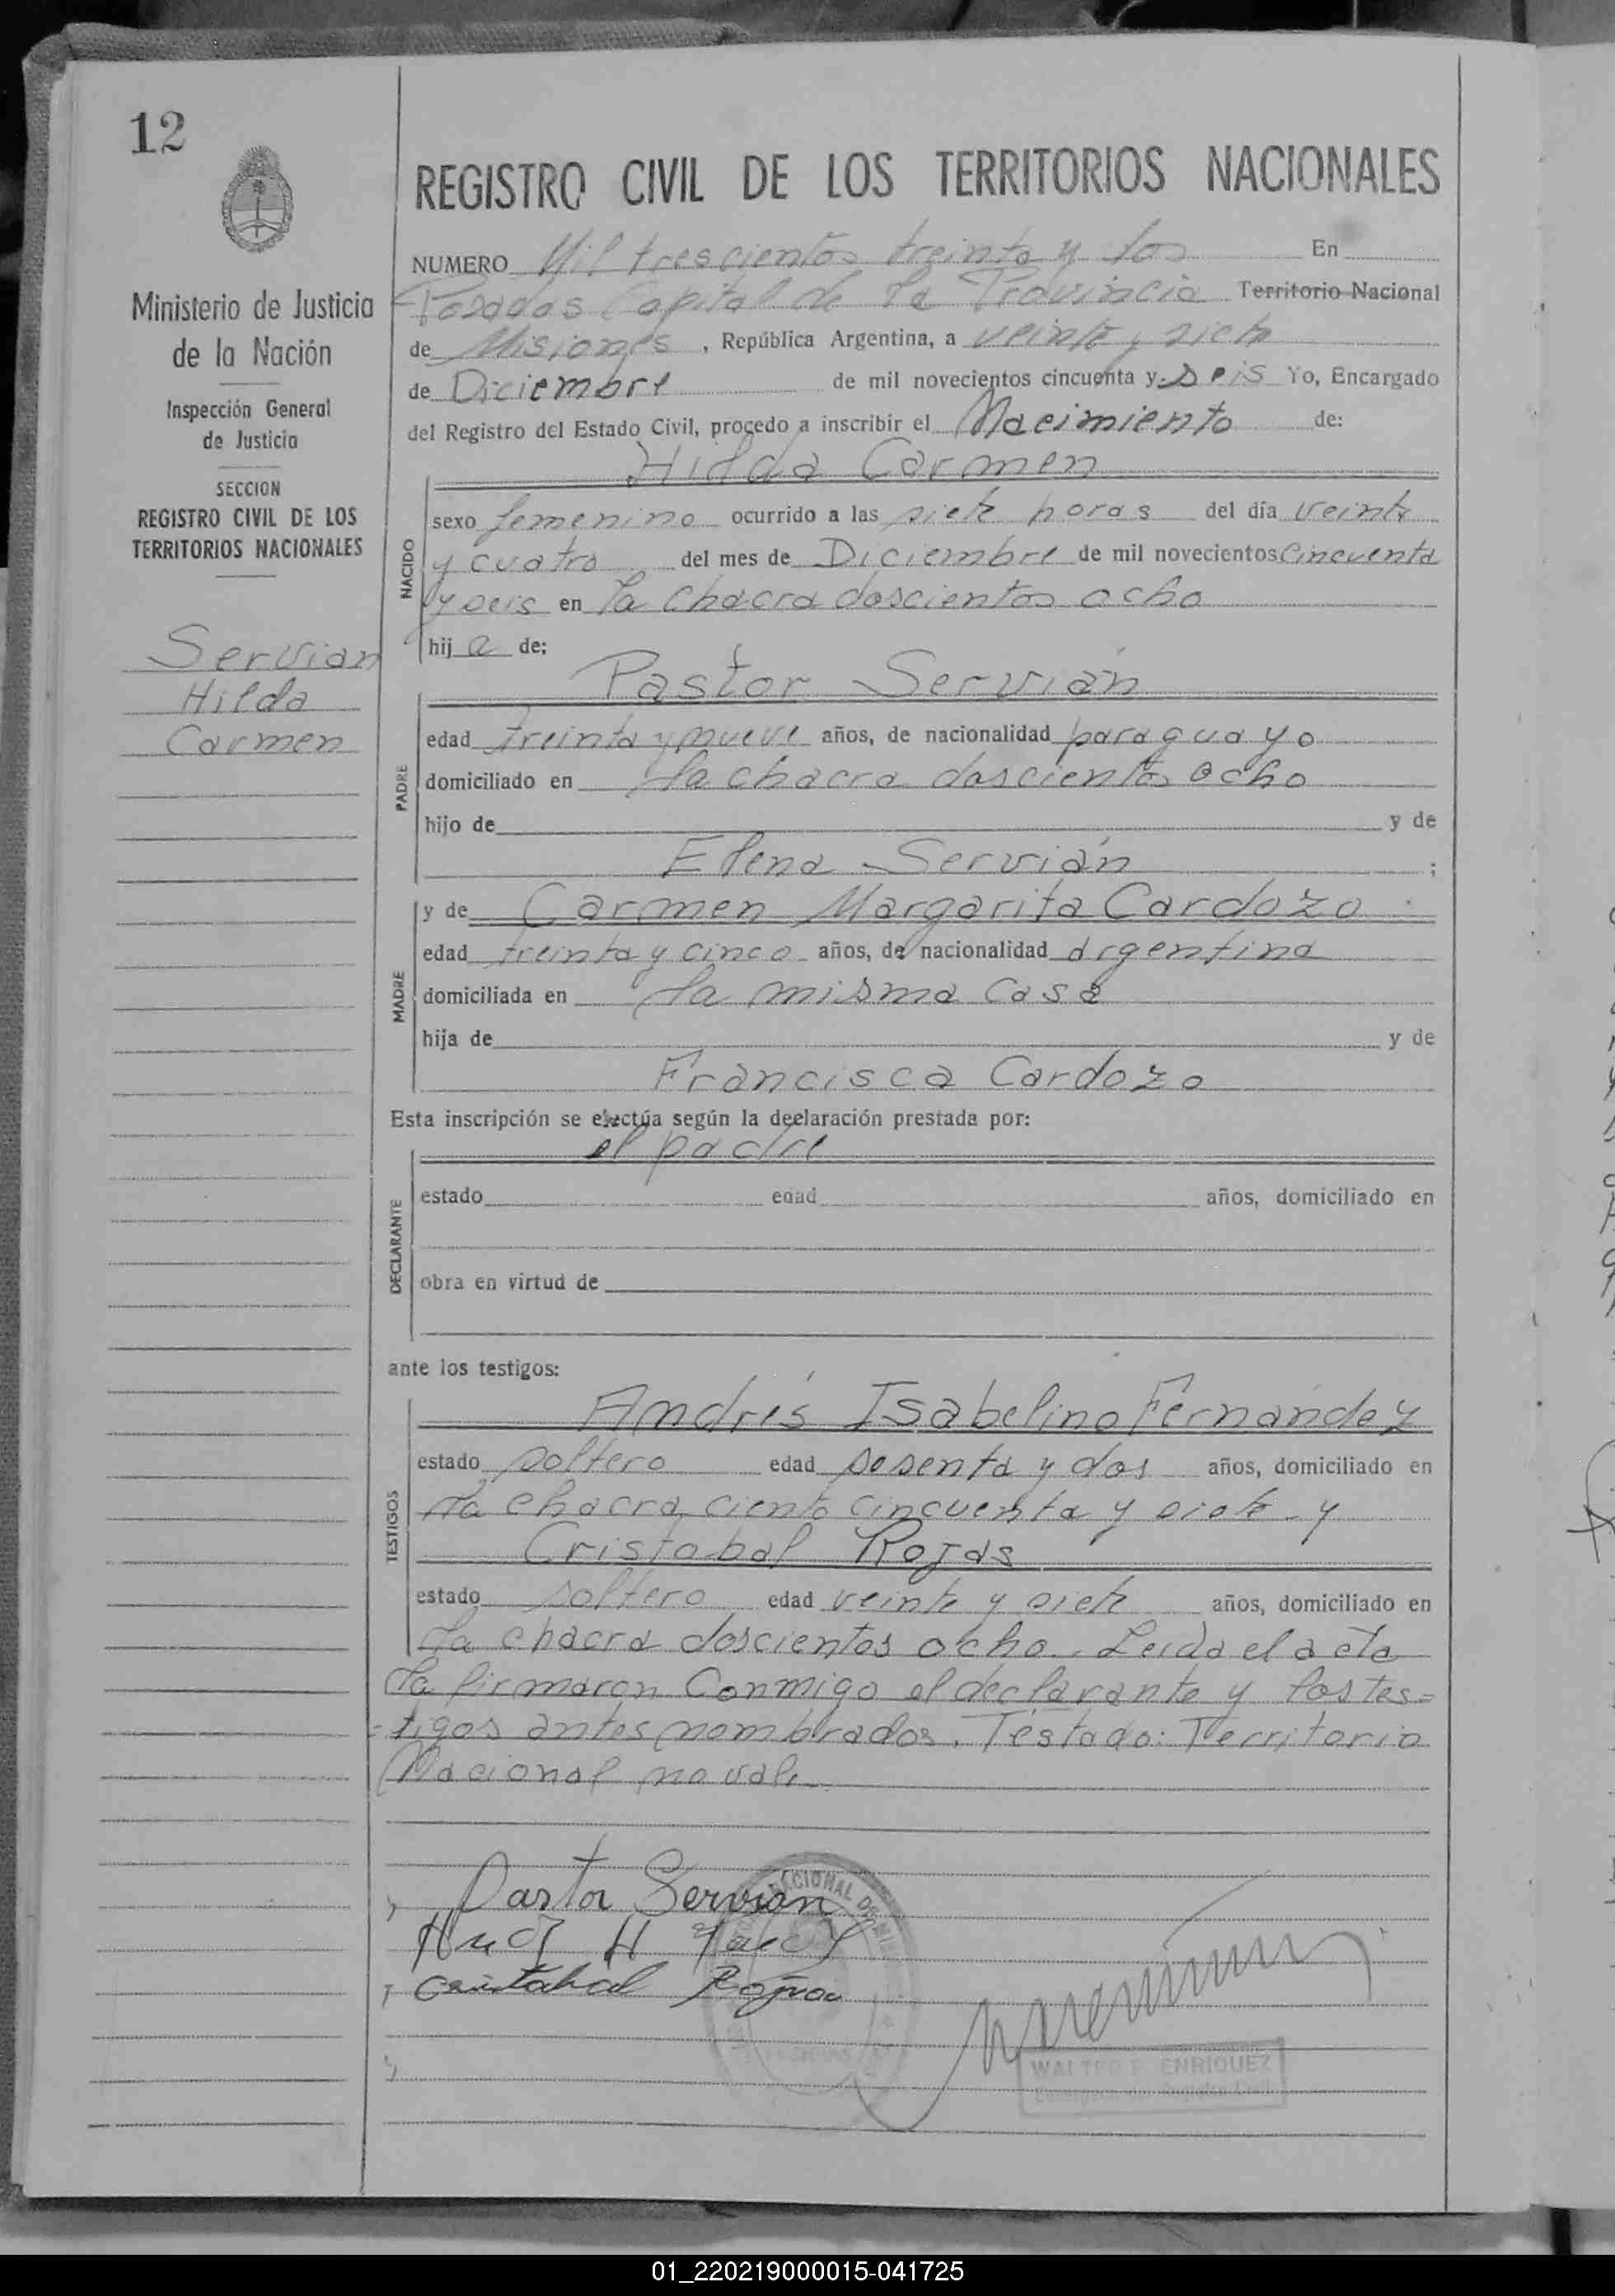 12
Ministerio de Justicia
de la Nación
Inspección General
de Justicia
SECCION
REGISTRO CIVIL DE LOS
TERRITORIOS NACIONALES
Servian
Hilda
Carmen
REGISTRO CIVIL DE LOS TERRITORIOS NACIONALES
NUMERO Mil trescientos treinta y dos En
Posadas Capital de la Provincia Territorio Nacional
de Misiones, República Argentina, a veinte y siete
de Diciembre de mil novecientos cincuenta y seis Yo, Encargado
del Registro del Estado Civil, procedo a inscribir el Nacimiento de:
Hilda Carmen
NACIDO
sexo femenino ocurrido a las siete horas del día veinte
y cuatro del mes de Diciembre de mil novecientos Cincuenta
y seis en la chacra doscientos ocho
hij a de:
Pastor Servián
PADRE
edad treinta y nueve años, de nacionalidad paraguayo
domiciliado en la chacra doscientos ocho
hijo de y de
Elena Servián ;
MADRE
y de Carmen Margarita Cardozo
edad treinta y cinco años, de nacionalidad argentina
domiciliada en la misma casa
hija de y de
Francisca Cardozo
Esta inscripción se efectúa según la declaración prestada por:
el padre
DECLARANTE
estado edad años, domiciliado en
obra en virtud de
ante los testigos:
Andrés Isabelino Fernández
TESTIGOS
estado soltero edad sesenta y dos años, domiciliado en
la chacra ciento cincuenta y siete y
Cristobal Rojas
estado soltero edad veinte y siete años, domiciliado en
la chacra doscientos ocho. Leida el acta
la firmaron conmigo el declarante y los tes=
=tigos antes nombrados. Testado: Territorio
Nacional no vale
Pastor Servian
Cristobal Rojas
WALTER F. ENRIQUEZ
01_220219000015-041725